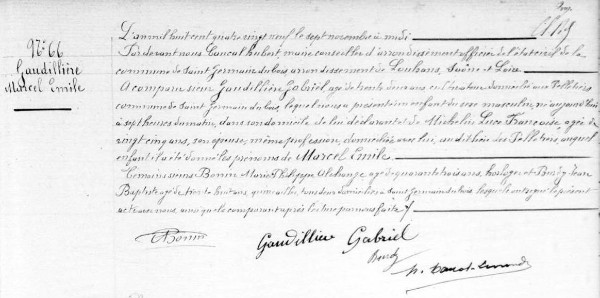 N° 66
Gaudillière
Marcel Emile
L'an mil huit cent quatre vingt neuf le sept novembre à midi
Pardevant nous hubert maire conseiller d'arrondissement officier de l'état civil de la
commune de Saint Germain du bois arrondissement de Louhans, Saône et Loire
A comparu sieur Gaudillière Gabriel, agé de trente deux ans domicilié aux Pelletiers
commune de Saint Germain du bois, lequel nous a présenté un enfant du sexe masculin, né aujourd'hui
à sept heures du matin, dans son domicile de lui déclarant et de Michelin Françoise, agée de
vingt cinq ans, son épouse, même profession, domiciliée avec lui, au dit lieu des Pelletiers, auquel
enfant il a été donné les prénoms de Marcel Emile
Témoins sieurs Bonin Marie Philippe Alphonse agé de quarante trois ans, horloger et Jean
Baptiste agé de trente huit ans, tous deux domiciliés à Saint Germain du bois, lesquels ont signé le présent
acte avec nous, ainsi que le comparant après lecture par nous faite
Bonin
Gaudillière Gabriel